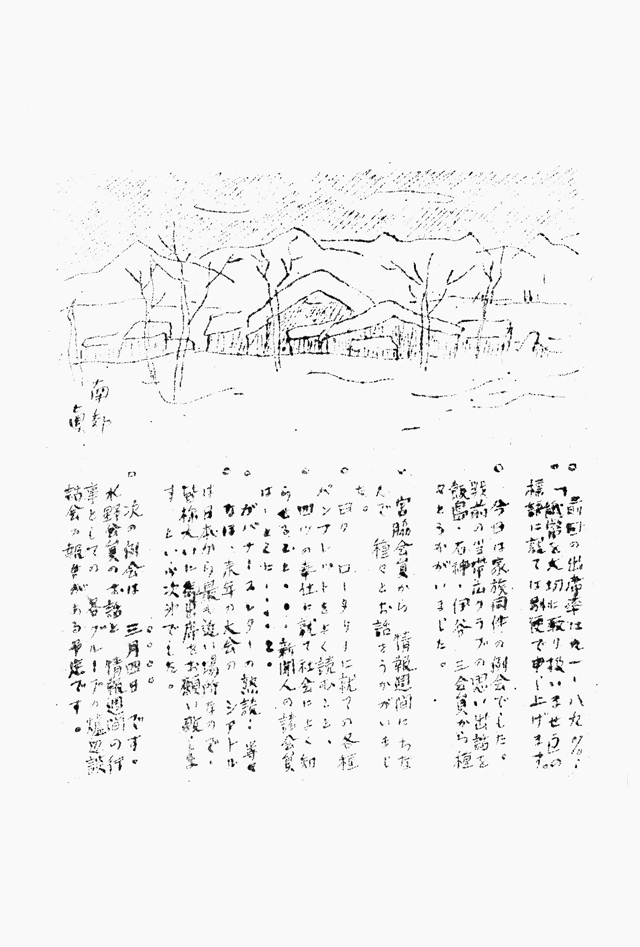 南部
眞
○ 前回の出席率は九一・八九%。
○「紙幣を大切に取り扱いませう」の
標語に就ては別便で申し上げます。
○ 今日は家族同伴の例会でした。
戦前の当帯広クラブの思い出話を
飯島・石神・伊谷 三会員から種
々とうかがいました。
○ 宮脇会員から 情報週間にちな
んで 種々とお話をうかがいまし
た。
○ 曰ク ロータリーに就ての各種
パンフレットをよく読むこと、
○ 四ツの奉仕に就て社会によく知
らせること。・・新聞人の諸会員
は
○ ガバナースレターの熟読 等々
○ なほ、来年の大会の シアトル
は日本から最も近い場所なので、
皆様大いに 出席をお願い致しま
す といふ次第でした。
○ 次の例会は 三月四日 です。
水野会員のお話と 情報週間の行
事としての 各グループの爐辺談
話会の報告がある予定です。